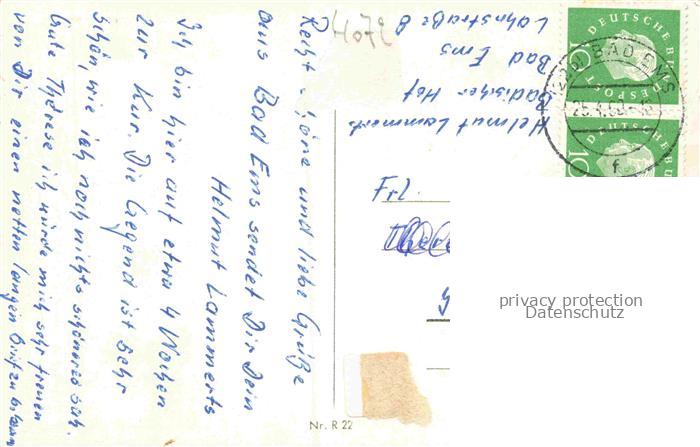 Recht schöne und liebe Grüße
aus Bad Ems sendet Dir Dein
Helmut Lammerts
Ich bin hier auf etwa 4 Wochen
zur Kur. Die Gegend ist sehr
schön, wie ich noch nichts schöneres sah.
Gute Therese ich würde mich sehr freuen
von Dir einen netten langen Brief zu bekommen
Helmut Lammerts
Badischer Hof
Bad Ems
Lahnstraße 8
Hoti
DEUTSCHE BUNDESPOST
10
BAD EMS
f
DEUTSCHE BU
10
Frl.
privacy protection
Datenschutz
Nr. R 22